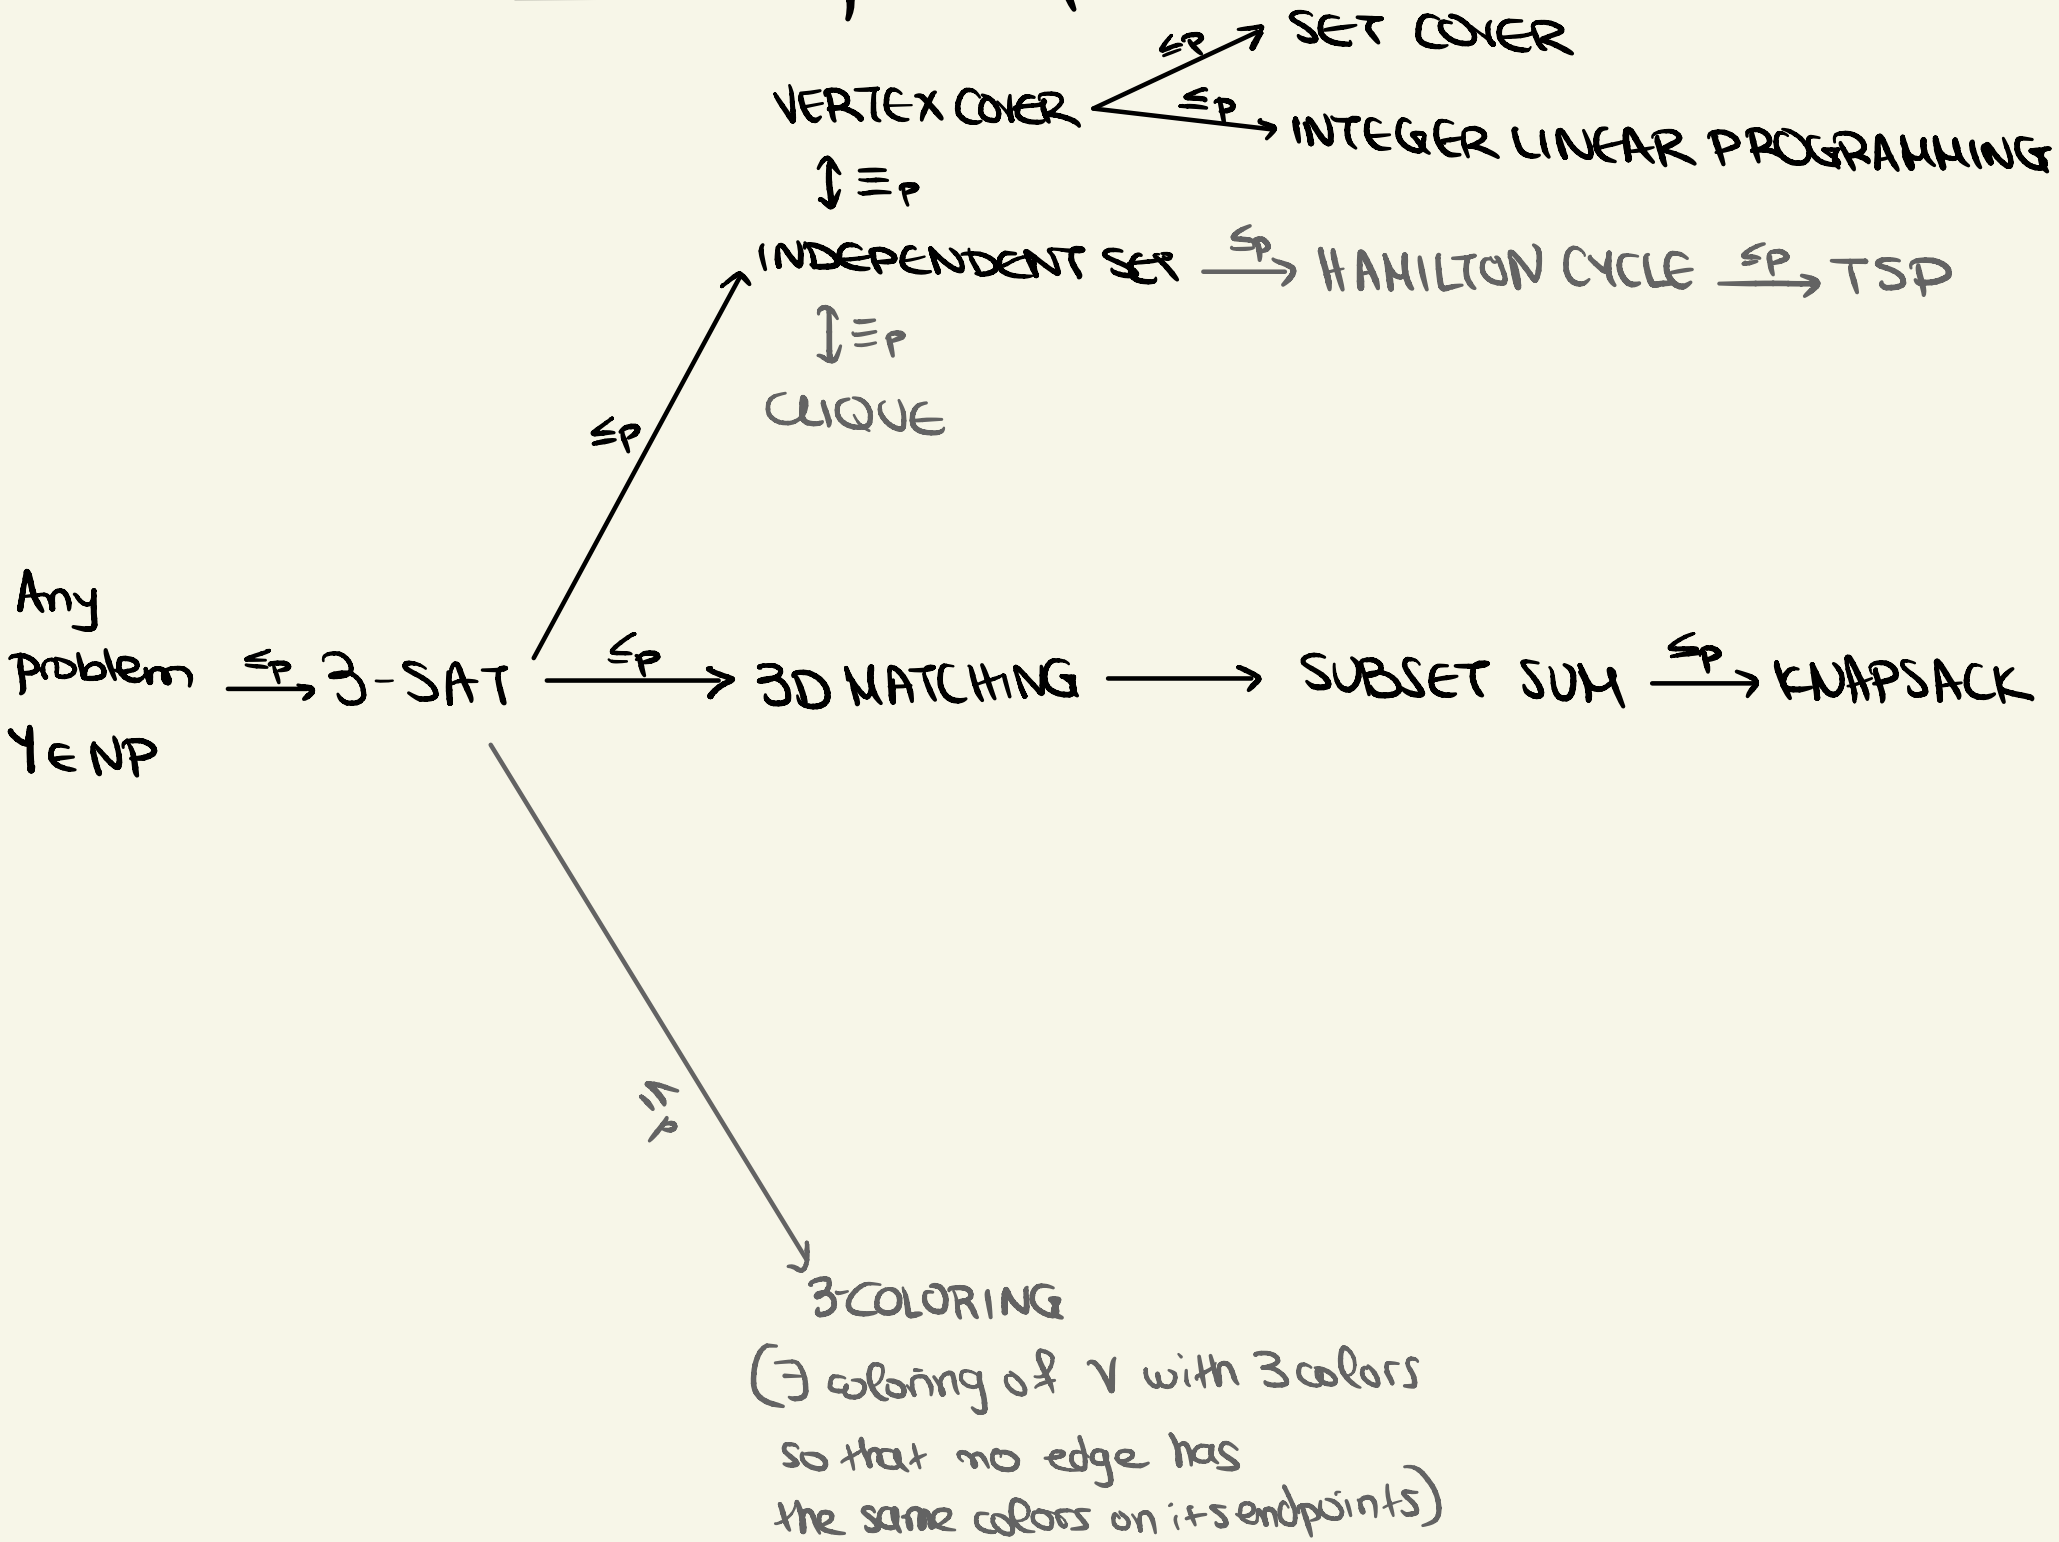 ≤p SET COVER
VERTEX COVER ≤p INTEGER LINEAR PROGRAMMING
↕ ≡p
INDEPENDENT SET ≤p → HAMILTON CYCLE ≤p → TSP
↕ ≡p
CLIQUE
≤p
Any
problem ≤p → 3-SAT ≤p → 3D MATCHING → SUBSET SUM ≤p → KNAPSACK
Y ∈ NP
≤p
3-COLORING
(∃ coloring of V with 3 colors
so that no edge has
the same colors on its endpoints)